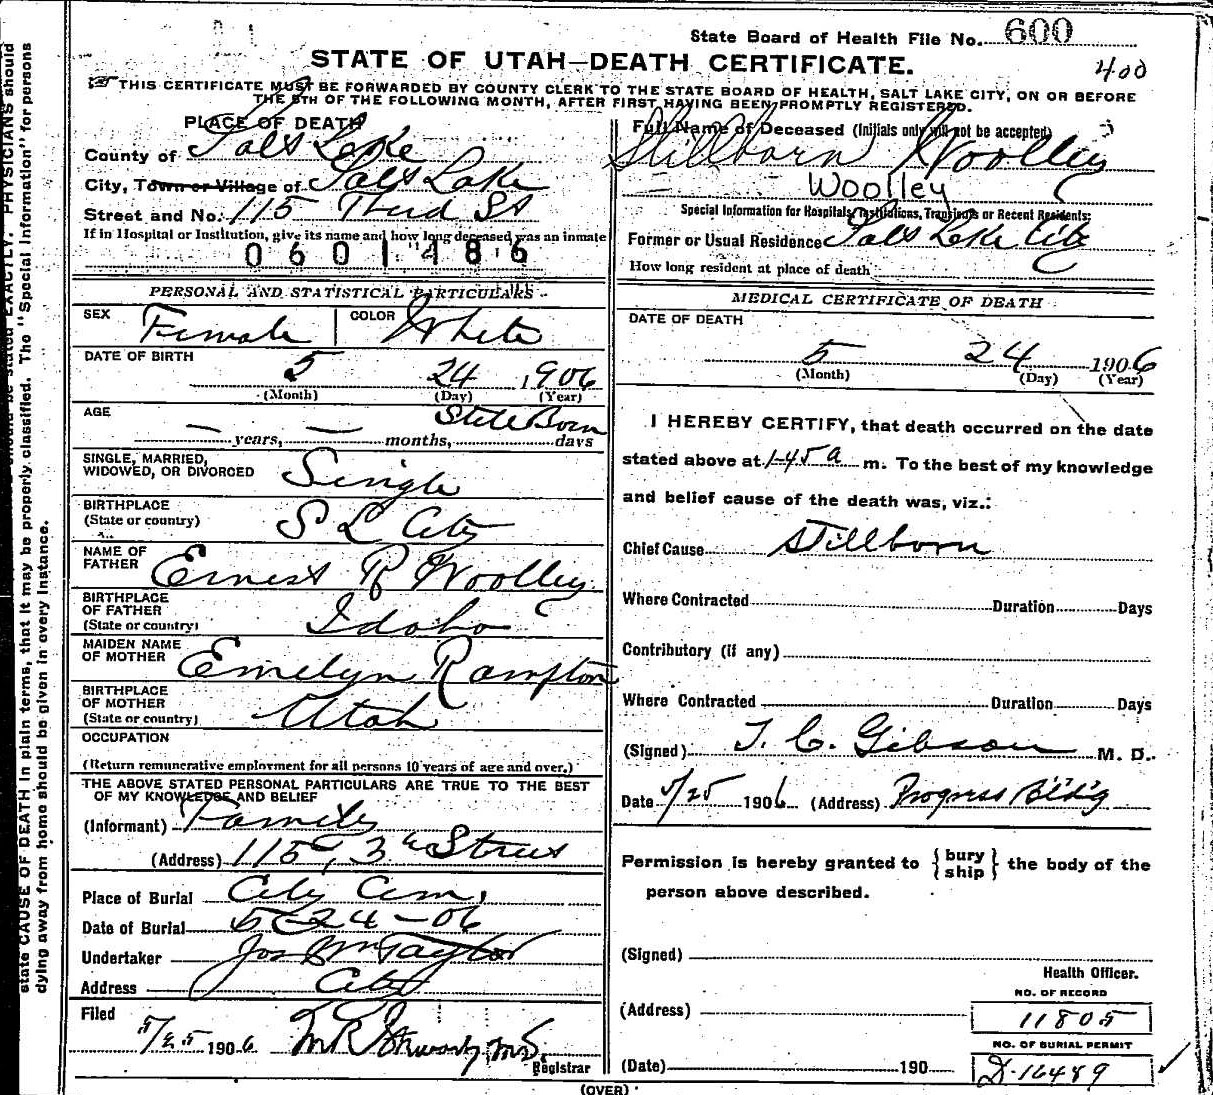 State Board of Health File No. 600
STATE OF UTAH—DEATH CERTIFICATE.
400
THIS CERTIFICATE MUST BE FORWARDED BY COUNTY CLERK TO THE STATE BOARD OF HEALTH, SALT LAKE CITY, ON OR BEFORE
THE 5TH OF THE FOLLOWING MONTH, AFTER FIRST HAVING BEEN PROMPTLY REGISTERED.
PLACE OF DEATH
County of Salt Lake
City, Town or Village of Salt Lake
Street and No. 115 Third St
If in Hospital or Institution, give its name and how long deceased was an inmate
0601486
PERSONAL AND STATISTICAL PARTICULARS
SEX Female COLOR White
DATE OF BIRTH
5 24 1906
(Month) (Day) (Year)
AGE Still Born
— years, — months, days
SINGLE, MARRIED,
WIDOWED, OR DIVORCED Single
BIRTHPLACE
(State or country) S L City
NAME OF
FATHER Ernest R Woolley
BIRTHPLACE
OF FATHER
(State or country) Idaho
MAIDEN NAME
OF MOTHER Emelyn Rampton
BIRTHPLACE
OF MOTHER
(State or country) Utah
OCCUPATION
(Return remunerative employment for all persons 10 years of age and over.)
THE ABOVE STATED PERSONAL PARTICULARS ARE TRUE TO THE BEST
OF MY KNOWLEDGE AND BELIEF
(Informant) Family
(Address) 115, 3rd Street
Place of Burial City Cem.
Date of Burial 5-24-06
Undertaker Jos Wm Taylor
Address City
Filed
5/25 1906 Registrar
Full Name of Deceased (Initials only will not be accepted)
Stillborn Woolley
Woolley
Special Information for Hospitals, Institutions, Transients or Recent Residents:
Former or Usual Residence Salt Lake City
How long resident at place of death
MEDICAL CERTIFICATE OF DEATH
DATE OF DEATH
5 24 1906
(Month) (Day) (Year)
I HEREBY CERTIFY, that death occurred on the date
stated above at 1-45 a m. To the best of my knowledge
and belief cause of the death was, viz.:
Chief Cause Stillborn
Where Contracted Duration Days
Contributory (if any)
Where Contracted Duration Days
(Signed) T. C. Gibson M. D.
Date 5/25 1906 (Address) Progress Bldg
Permission is hereby granted to { bury
ship } the body of the
person above described.
(Signed)
Health Officer.
NO. OF RECORD
(Address) 11805
NO. OF BURIAL PERMIT
(Date) 190 D-16489
(OVER)
state CAUSE OF DEATH in plain terms, that it may be properly classified. The "Special Information" for persons
dying away from home should be given in every instance.
stated EXACTLY. PHYSICIANS should